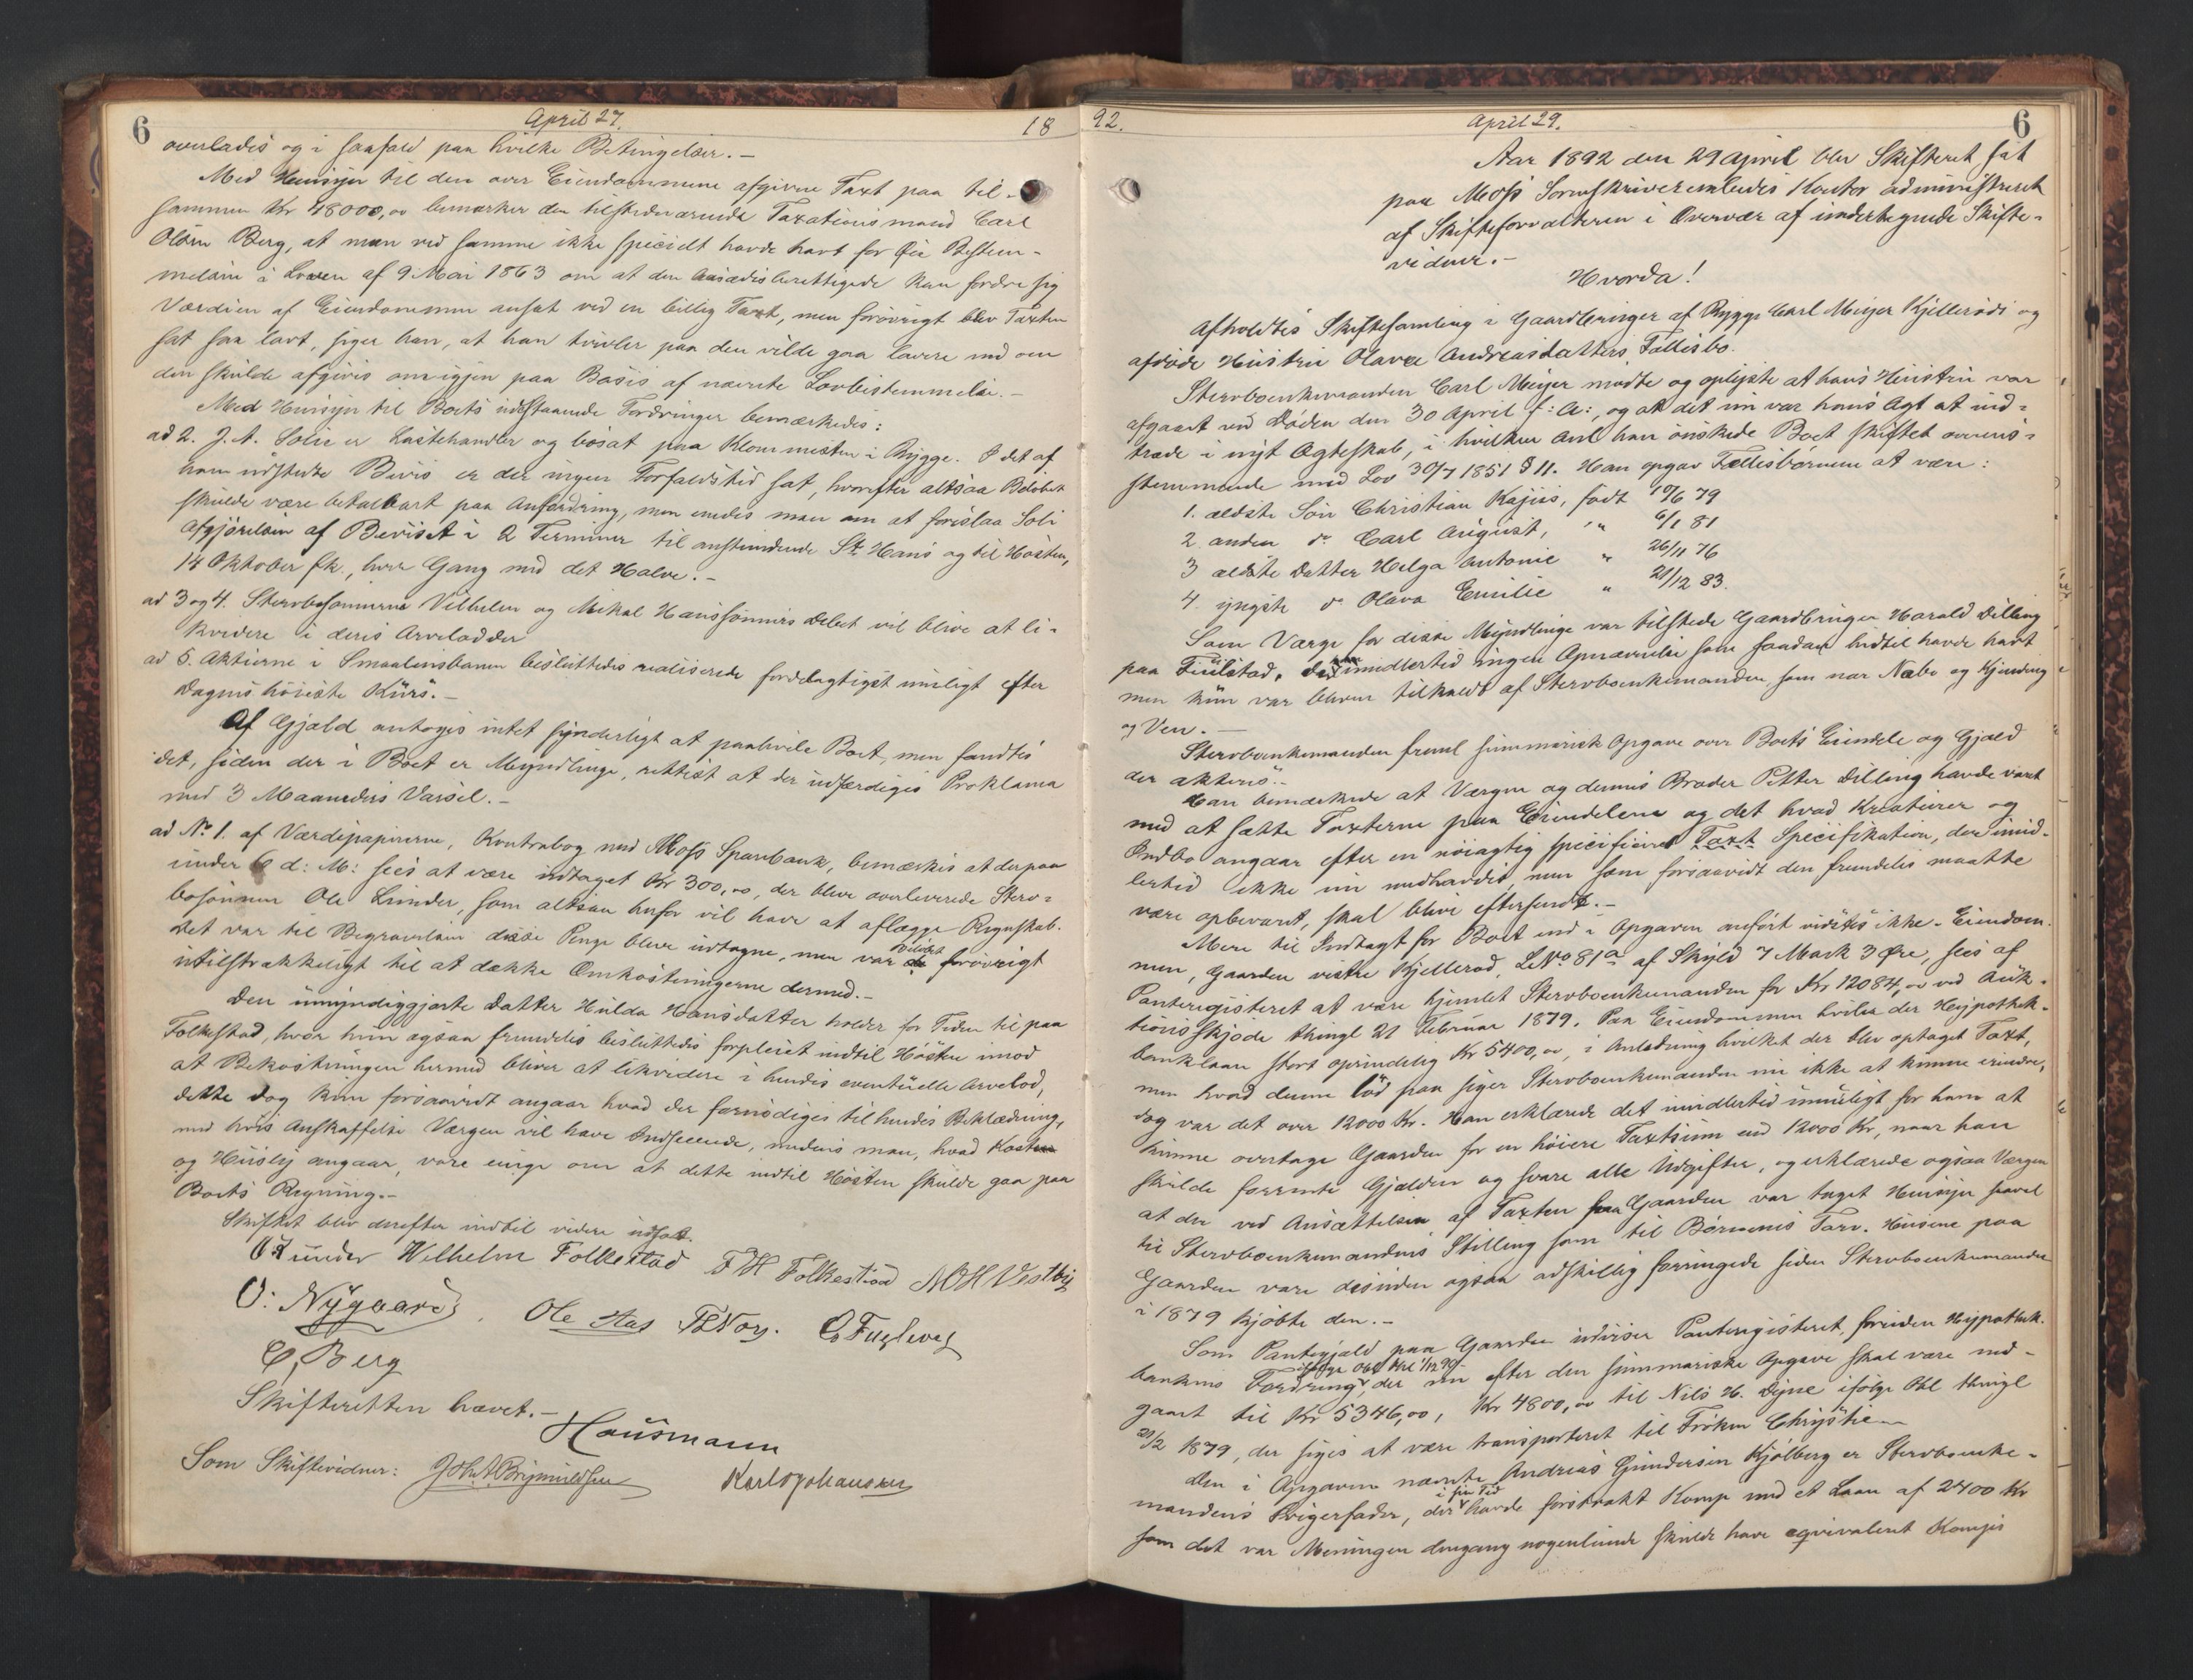 6 April 27. 18
overlades og i saafald paa hvilke Betingelser. –
Med Hensyn til den over Eiendommene afgivne Taxt paa til-
sammen Kr 48000,00 bemærker den tilstedeværende Taxationsmand Carl
Olsen Berg, at man ved samme ikke specielt havde havt for Øie Bestem-
melsen i Loven af 9 Mai 1863 om at den Aasædesberettigede kan fordre sig
Værdien af Eiendommen ansat ved en billig Taxt, men forøvrigt blev Taxten
sat saa lavt, siger han, at han tvivler paa den vilde gaa lavere ned om
den skulde afgives omigjen paa Basis af nævnte Lovbestemmelse. –
Med Hensyn til Boets udestaaende Fordringer bemærkedes:
ad 2. J. A. Solie er Lastehandler og bosat paa Klommesten i Rygge. I det af
ham udstedte Bevis er der ingen Forfaldstid sat, hvorefter altsaa Beløbet
skulde være betalbart paa Anfordring, men enedes man om at foreslaa Soli
Afgjørelsen af Beviset i 2 Terminer til anstundende St. Hans og til Høsten,
14 Oktober fk., hver Gang med det Halve. –
ad 3 og 4. Stervbosønnerne Vilhelm og Mikal Hanssønners Debet vil blive at li-
kvidere i deres Arvelodder
ad 5. Aktierne i Smaalensbanen besluttedes realiserede fordelagtigst muligt efter
Dagens høieste Kurs. –
Af Gjæld antoges intet synderligt at paahvile Boet, men fandtes
det, siden der i Boet er Myndlinge, rettest at der udfærdiges Proklama
med 3 Maaneders Varsel. –
ad No 1. af Værdipapirerne, Kontrabog med Moss Sparebank, bemærkes at derpaa
under 6 d: M: sees at være udtaget Kr 300,00, der bleve overleverede Sterv-
bosønnen Ole Lunder, som altsaa herfor vil have at aflægge Regnskab.
Det var til Begravelsen disse Penge bleve udtagne, men var de forøvrigt
utilstrækkeligt til at dække Omkostningerne dermed. –
Den umyndiggjorte Datter Hulda Hansdatter holder for Tiden til paa
Folkestad, hvor hun ogsaa fremdeles besluttedes forpleiet indtil Høsten imod
at Bekostningen hermed bliver at likvidere i hendes eventuelle Arvelod,
dette dog kun forsaavidt angaar hvad der fornødiges til hendes Beklædning,
med hvis Anskaffelse Værgen vil have Indseende, medens man, hvad Kosten
og Huusly angaar, vare enige om at dette indtil Høsten skulde gaa paa
Boets Regning. –
Skiftet blev derefter indtil videre udsat.
O Lunder Wilhelm Folkestad F H Folkestad M H Vestby
O: Nygaard, Ole Aas Th Voy. C. Fuglevig
C, Berg
Skifteretten hævet. –
Hausmann
Som Skiftevidner: Joh. A. Brynildsen Karl Johansen
92. April 29. 6
Aar 1892 den 29 April blev Skifteret sat
paa Moss Sorenskriverembedes Kontor administreret
af Skifteforvalteren i Overvær af undertegnede Skifte-
vidner. –
Hvorda!
Afholdtes Skiftesamling i Gaardbruger af Rygge Carl Meyer Kjellerøds og
afdøde Hustru Olava Andreasdatters Fællesbo.
Stervboenkemanden Carl Meyer mødte og oplyste at hans Hustru var
afgaaet ved Døden den 30 April f: A:, og at det nu var hans Agt at ind-
træde i nyt Ægteskab, i hvilken Anl han ønskede Boet skiftet overens-
stemmende med Lov 30/7 1851 § 11. Han opgav Fællesbørnene at være:
1. ældste Søn Christian Kajus, født 10/6 79
2. anden do Carl August, " 6/1 81
3 ældste Datter Helga Antonie " 26/11 76
4. yngste do Olava Emilie " 21/12 83.
Som Værge for disse Myndlinge var tilstede Gaardbruger Harald Dilling
paa Fuulstad, der imidlertid ingen Opnævnelse som saadan hidtil havde havt
men kun var bleven tilkaldt af Stervboenkemanden som nær Nabo og Kjending
og Ven. –
Stervboenkemanden freml summarisk Opgave over Boets Eiendele og Gjæld
der akteres.
Han bemærkede at Værgen og dennes Broder Petter Dilling havde været
med at sætte Taxterne paa Eiendelene og det hvad Kreaturer og
Indbo angaar efter en nøiagtig specificeret Taxt Specifikation, der imid-
lertid ikke nu medhavdes, men som forsaavidt den fremdeles maatte
være opbevaret, skal blive eftersendt. –
Mere til Indtægt for Boet end i Opgaven anført vidstes ikke. – Eiendom-
men, Gaarden vestre Kjellerød, LNo 81a af Skyld 7 Mark 3 Øre, sees af
Panteregisteret at være hjemlet Stervboenkemanden for Kr 12084,00 ved Auk-
tionsskjøde thingl 21 Februar 1879. Paa Eiendommen hviler der Hypothek-
banklaan stort oprindelig Kr 5400,00, i Anledning hvilket der blev optaget Taxt,
men hvad denne lød paa siger Stervboenkemanden nu ikke at kunne erindre,
dog var det over 12000 Kr. Han erklærede det imidlertid umuligt for ham at
kunne overtage Gaarden for en høiere Taxtsum end 12000 Kr, naar han
skulde forrente Gjælden og svare alle Udgifter, og erklærede ogsaa Værgen
at der ved Ansættelsen af Taxten paa Gaarden var taget Hensyn saavel
til Stervboenkemandens Stilling som til Børnenes Tarv. Husene paa
Gaarden vare desuden ogsaa adskillig forringede siden Stervboenkemanden
i 1879 kjøbte den. –
Som Pantegjæld paa Gaarden udviser Panteregisteret, foruden Hypothek-
bankens Fordring ifølge Obl thl 1/12 90, der nu efter den summariske Opgave skal være ned-
gaaet til Kr 5346,00, Kr 4800,00 til Nils H. Dyne ifølge Obl thingl
21/2 1879, der siges at være transporteret til Frøken Chrystie –
Den i Opgaven nævnte Andreas Gundersen Kjølberg er Stervboenke-
mandens Svigerfader, der i sin Tid havde forstrakt Komp med et Laan af 2400 Kr
som det var Meningen dengang nogenlunde skulde have eqvivaleret Kompis